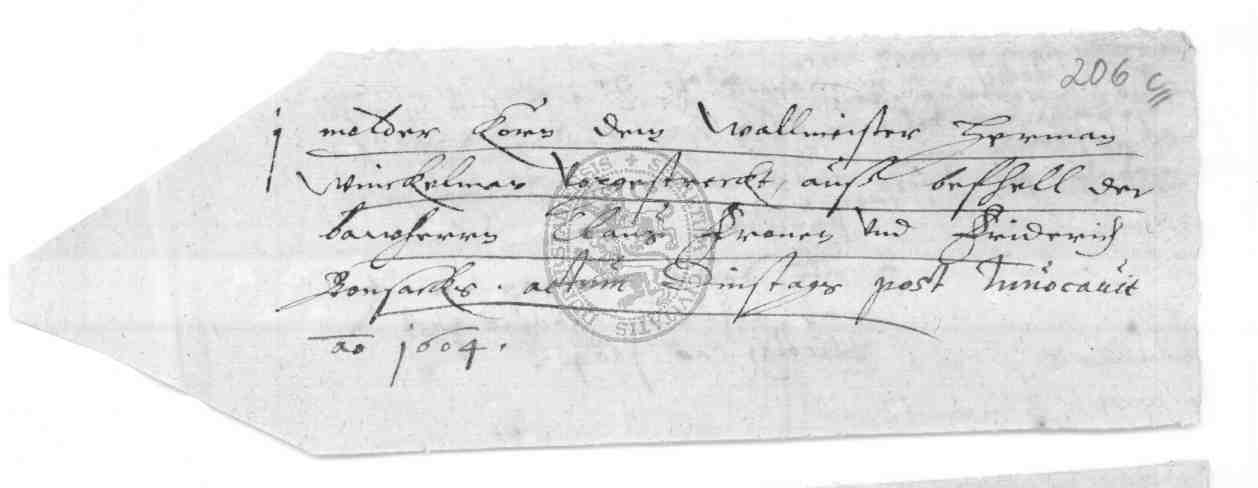 206 c
j molder Korn dem Wallmeister Herman
Winckelman Vorgestreckt, auß befhell der
bawherrn Clauß Fronen Vnd Friderich
Bonsacks. actum Dinstags post Inuocauit
ao 1604.